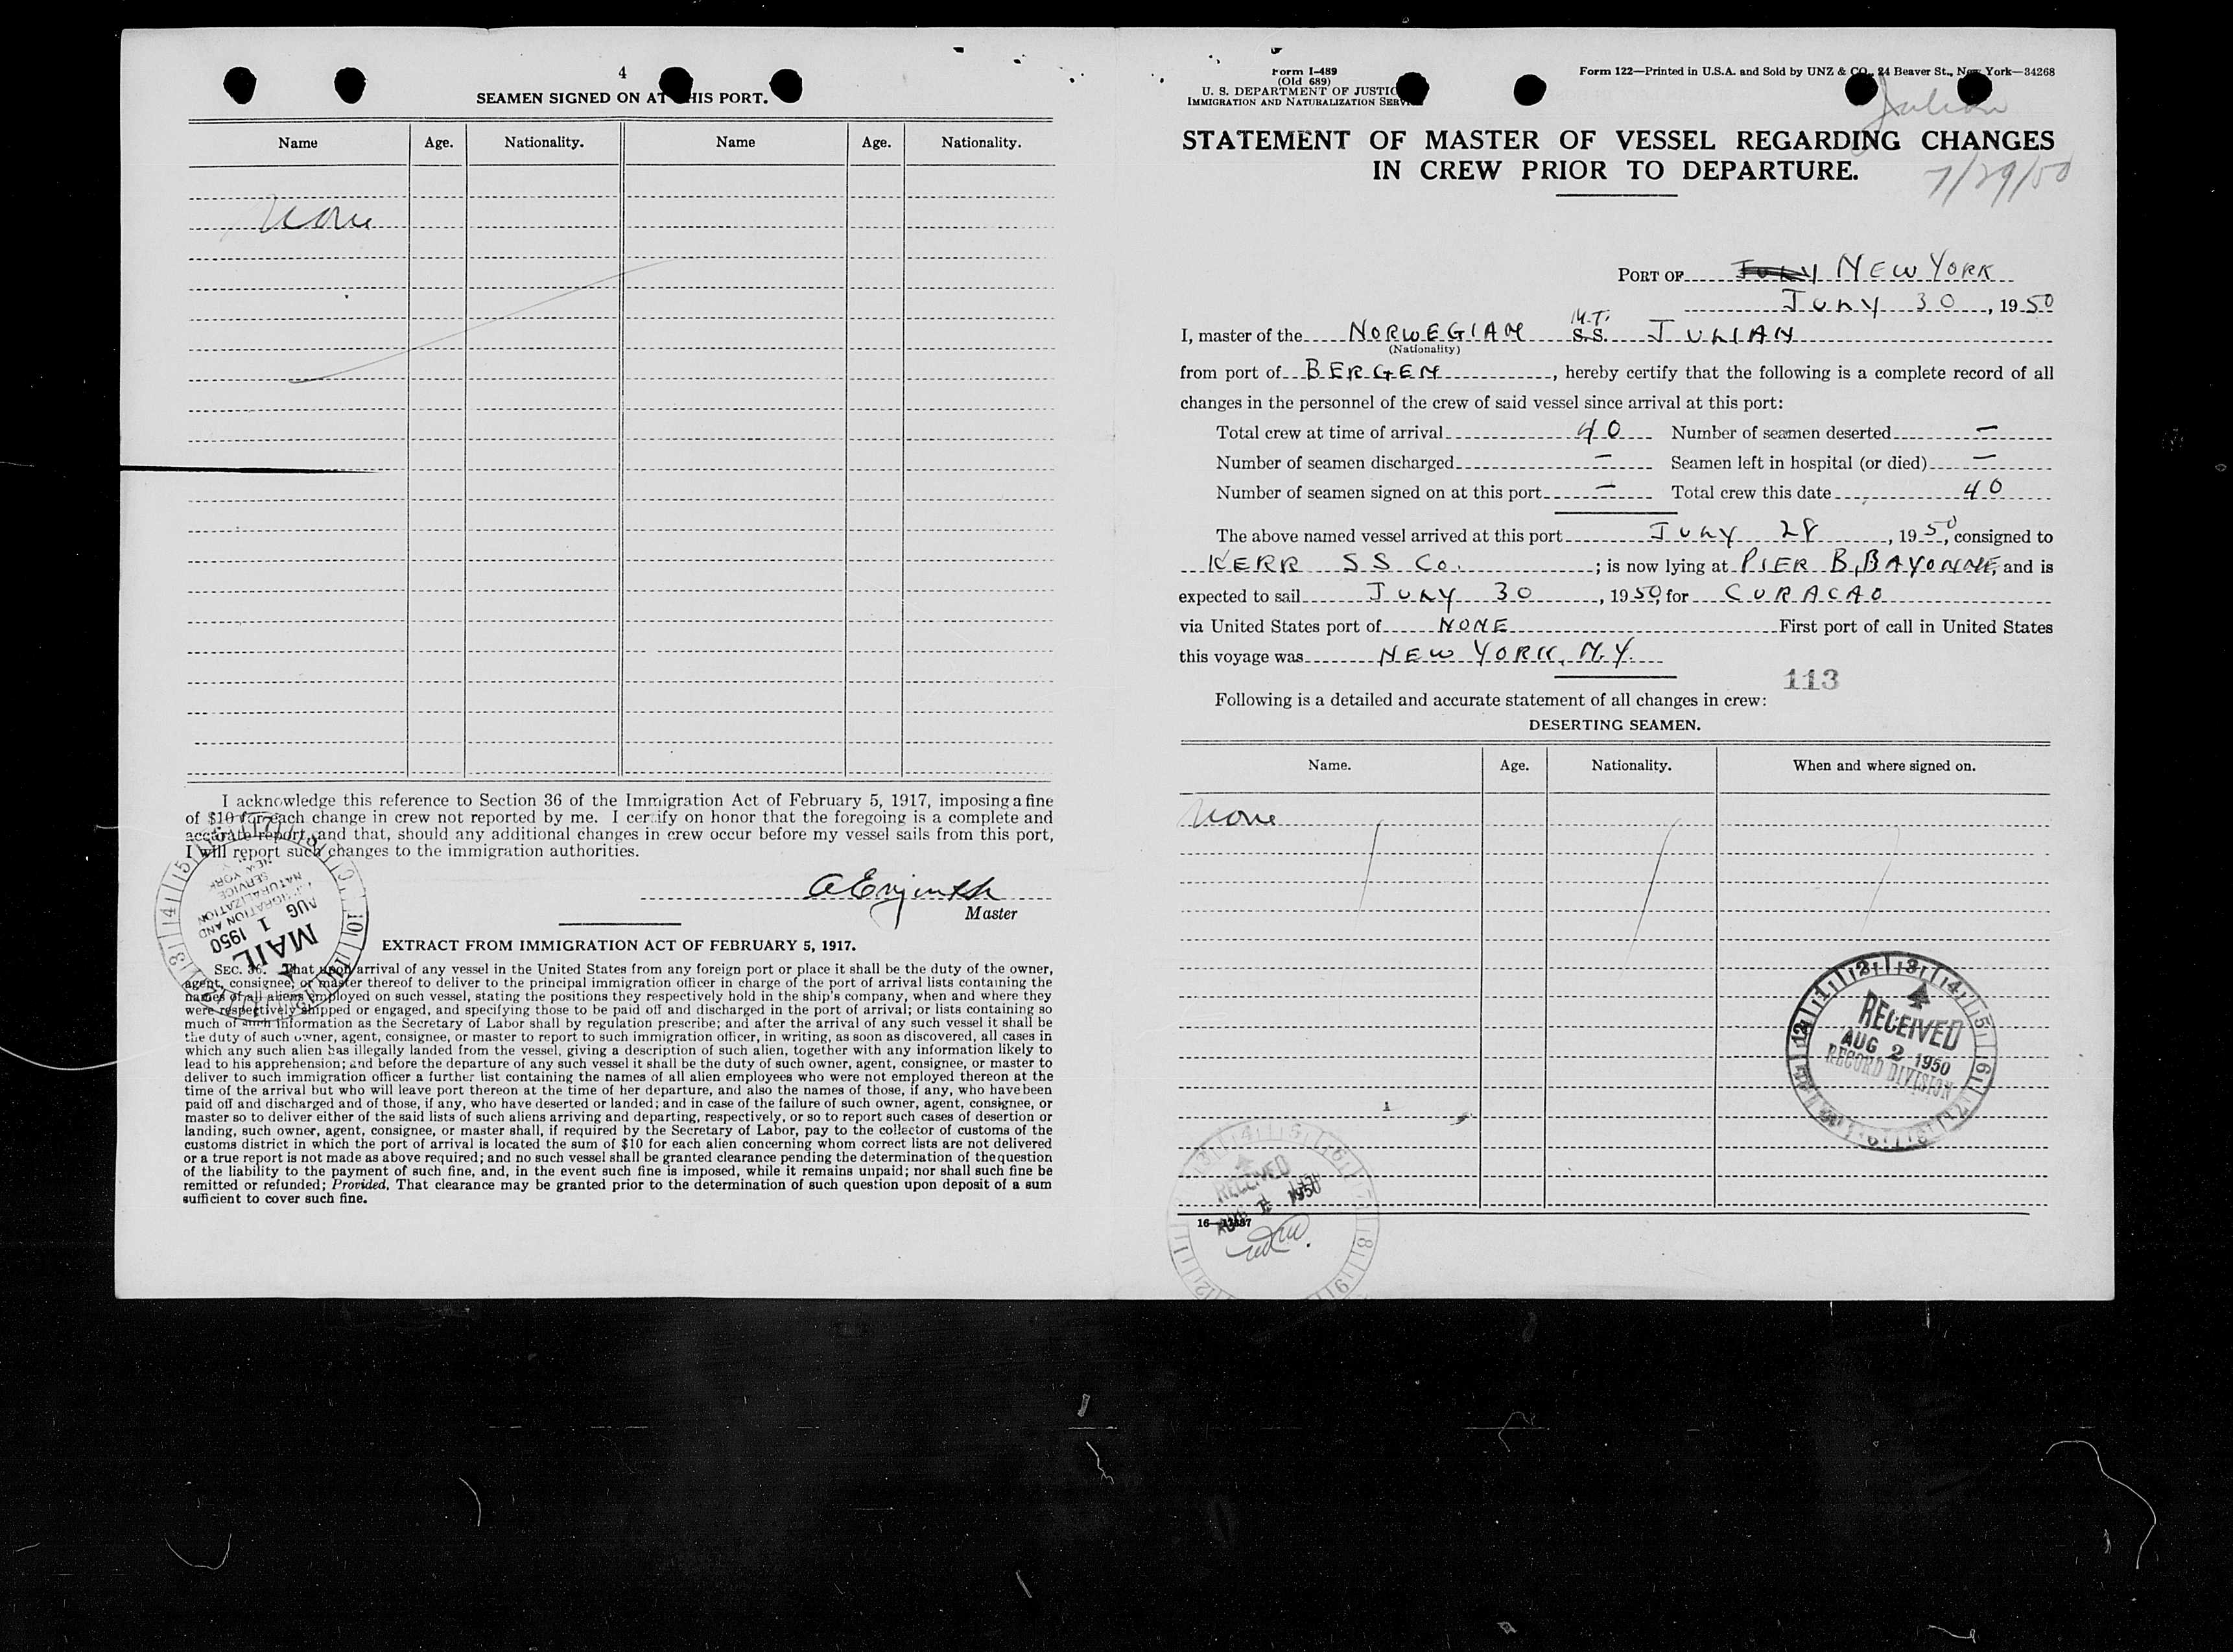 4
SEAMEN SIGNED ON AT THIS PORT.
Name Age. Nationality. Name Age. Nationality.
None
I acknowledge this reference to Section 36 of the Immigration Act of February 5, 1917, imposing a fine
of $10 for each change in crew not reported by me. I certify on honor that the foregoing is a complete and
accurate report, and that, should any additional changes in crew occur before my vessel sails from this port,
I will report such changes to the immigration authorities.
Master
IMMIGRATION AND
NATURALIZATION
SERVICE
NEW YORK
AUG 1 1950
MAIL
EXTRACT FROM IMMIGRATION ACT OF FEBRUARY 5, 1917.
SEC. 36. That upon arrival of any vessel in the United States from any foreign port or place it shall be the duty of the owner,
agent, consignee, or master thereof to deliver to the principal immigration officer in charge of the port of arrival lists containing the
names of all aliens employed on such vessel, stating the positions they respectively hold in the ship's company, when and where they
were respectively shipped or engaged, and specifying those to be paid off and discharged in the port of arrival; or lists containing so
much of such information as the Secretary of Labor shall by regulation prescribe; and after the arrival of any such vessel it shall be
the duty of such owner, agent, consignee, or master to report to such immigration officer, in writing, as soon as discovered, all cases in
which any such alien has illegally landed from the vessel, giving a description of such alien, together with any information likely to
lead to his apprehension; and before the departure of any such vessel it shall be the duty of such owner, agent, consignee, or master to
deliver to such immigration officer a further list containing the names of all alien employees who were not employed thereon at the
time of the arrival but who will leave port thereon at the time of her departure, and also the names of those, if any, who have been
paid off and discharged and of those, if any, who have deserted or landed; and in case of the failure of such owner, agent, consignee, or
master so to deliver either of the said lists of such aliens arriving and departing, respectively, or so to report such cases of desertion or
landing, such owner, agent, consignee, or master shall, if required by the Secretary of Labor, pay to the collector of customs of the
customs district in which the port of arrival is located the sum of $10 for each alien concerning whom correct lists are not delivered
or a true report is not made as above required; and no such vessel shall be granted clearance pending the determination of the question
of the liability to the payment of such fine, and, in the event such fine is imposed, while it remains unpaid; nor shall such fine be
remitted or refunded; Provided, That clearance may be granted prior to the determination of such question upon deposit of a sum
sufficient to cover such fine.
Form I-489
(Old 689)
U. S. DEPARTMENT OF JUSTICE
IMMIGRATION AND NATURALIZATION SERVICE
Form 122—Printed in U.S.A. and Sold by UNZ & CO., 24 Beaver St., New York—34268
Julian
STATEMENT OF MASTER OF VESSEL REGARDING CHANGES
IN CREW PRIOR TO DEPARTURE.
7/29/50
PORT OF JULY NEW YORK
JULY 30, 1950
I, master of the NORWEGIAN M.T. S.S. JULIAN
(Nationality)
from port of BERGEN, hereby certify that the following is a complete record of all
changes in the personnel of the crew of said vessel since arrival at this port:
Total crew at time of arrival 40 Number of seamen deserted —
Number of seamen discharged — Seamen left in hospital (or died) —
Number of seamen signed on at this port — Total crew this date 40
The above named vessel arrived at this port JULY 28, 1950, consigned to
KERR S S Co. ; is now lying at PIER B, BAYONNE, and is
expected to sail JULY 30, 1950, for CURACAO
via United States port of NONE First port of call in United States
this voyage was NEW YORK, N.Y.
113
Following is a detailed and accurate statement of all changes in crew:
DESERTING SEAMEN.
Name. Age. Nationality. When and where signed on.
None
RECEIVED
AUG 2 1950
RECORD DIVISION
RECEIVED
AUG 1 1950